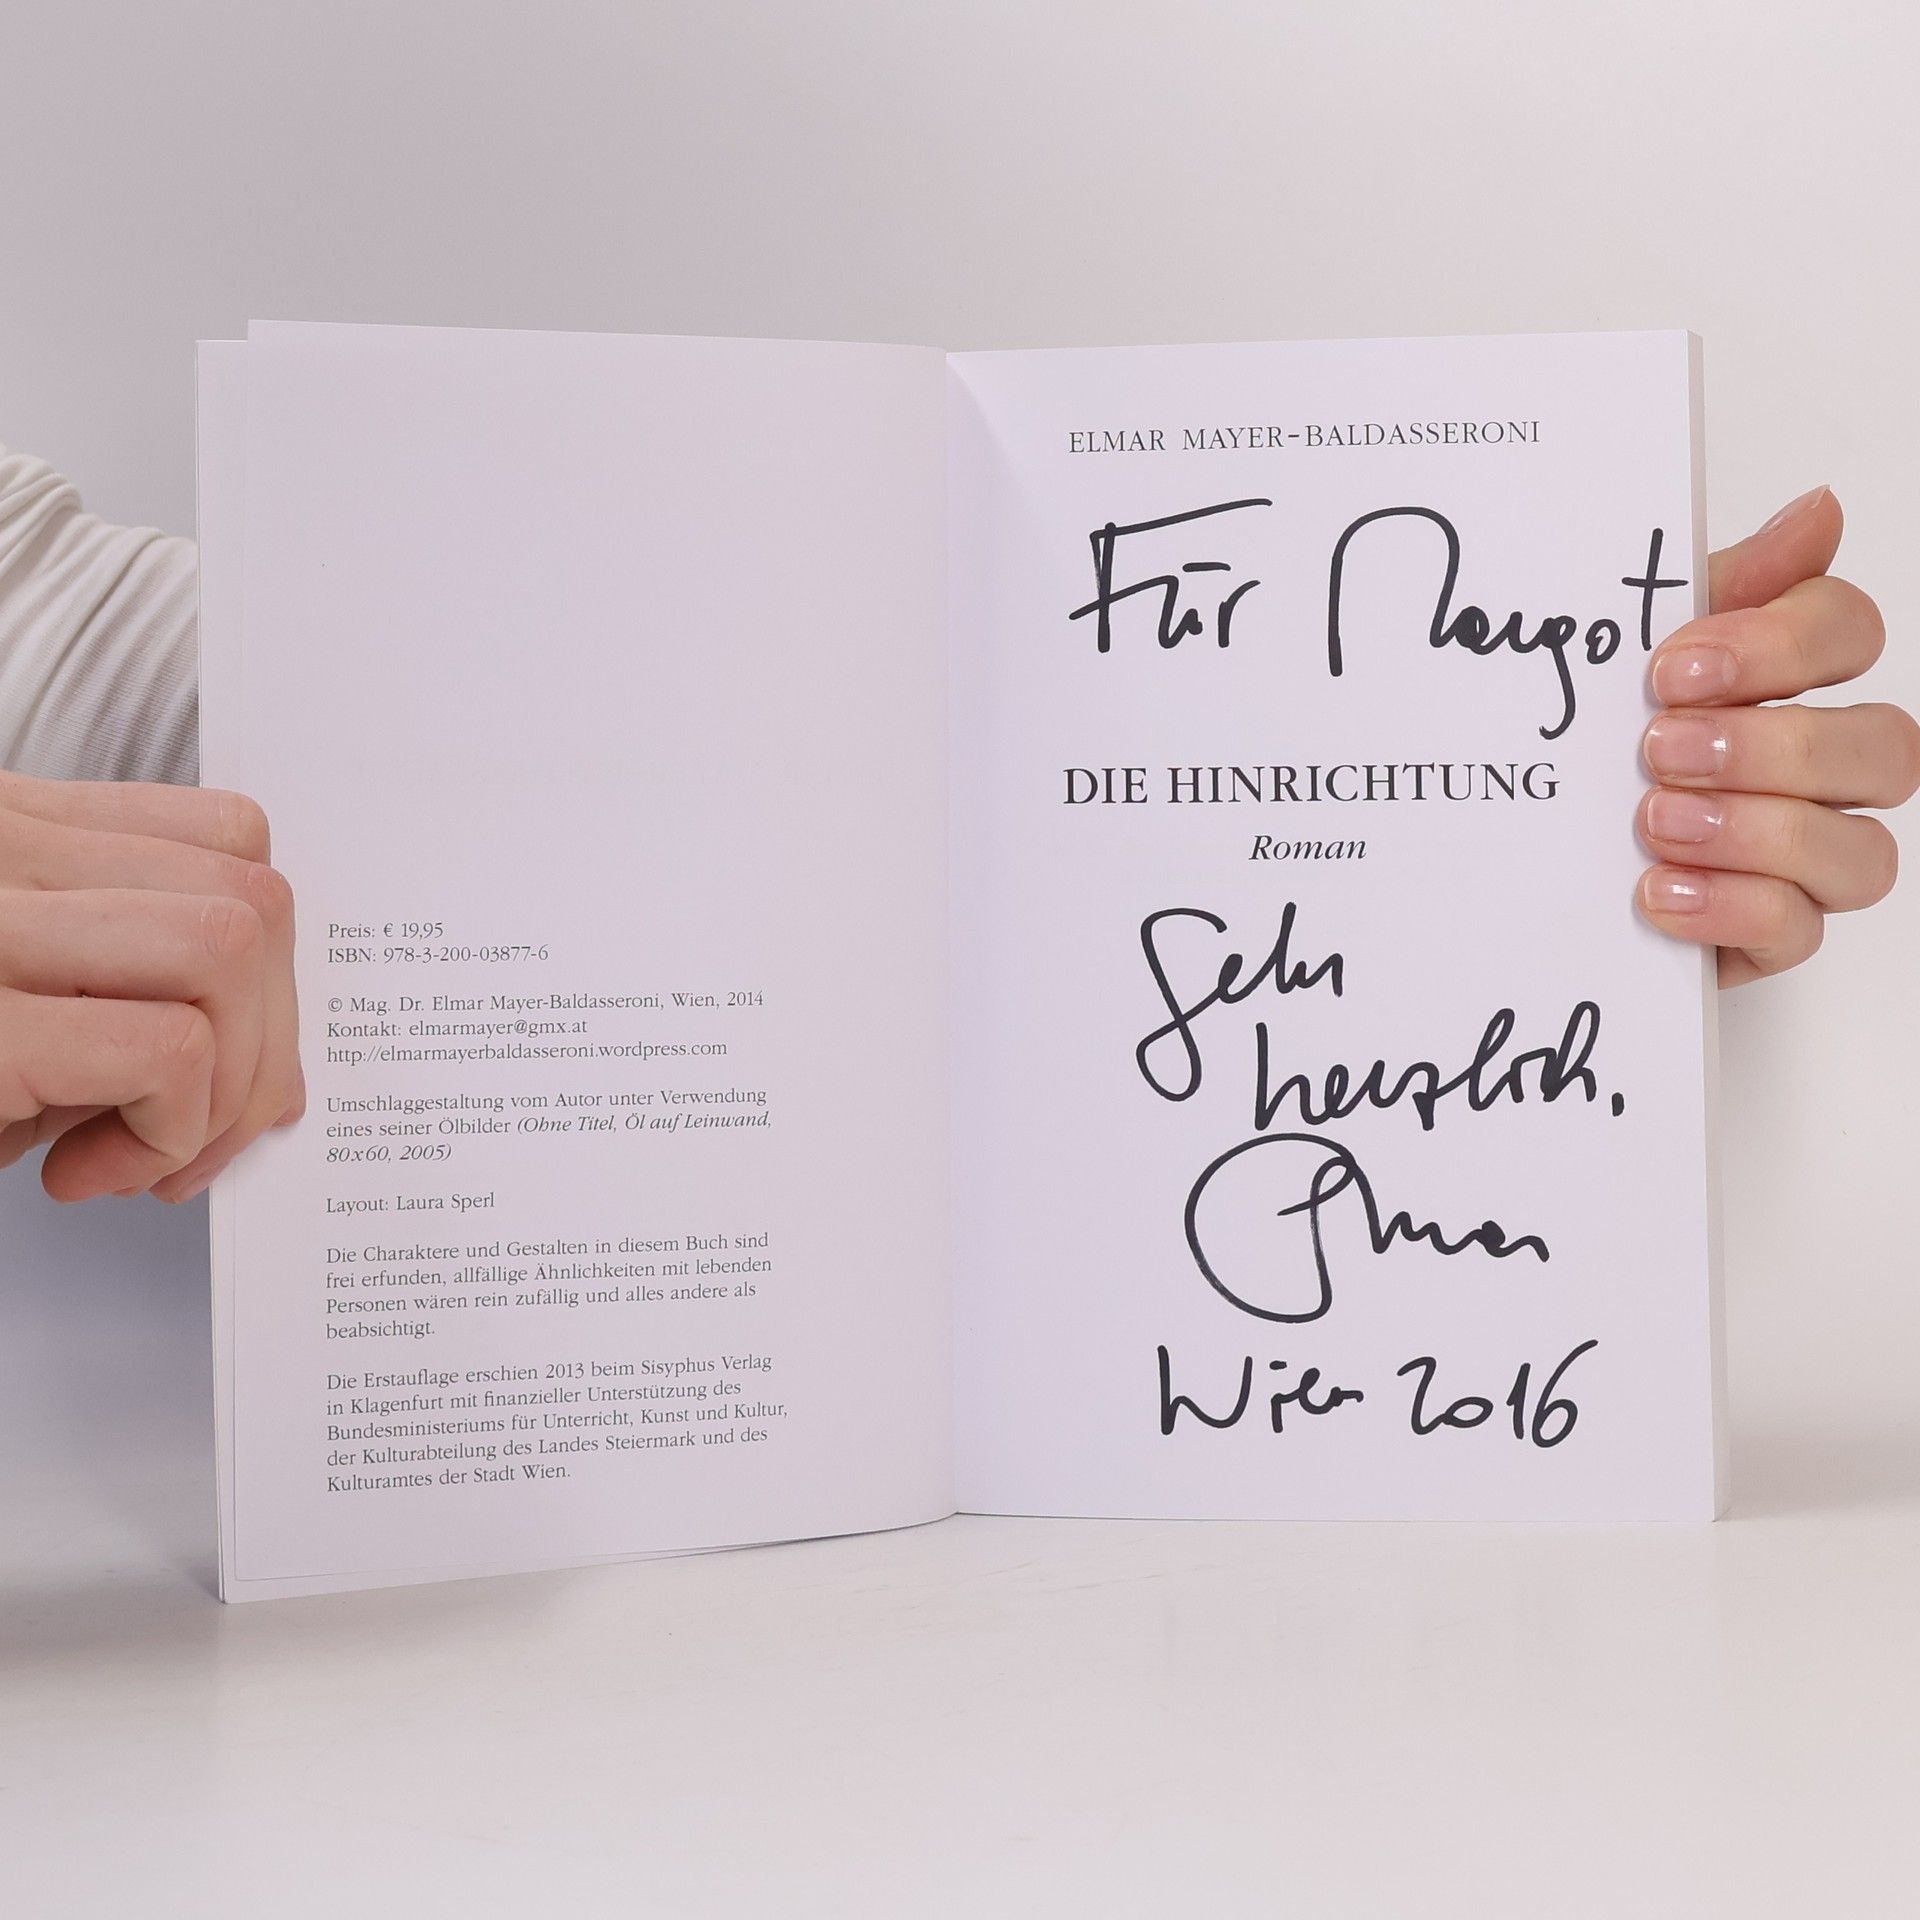 Preis: € 19,95
ISBN: 978-3-200-03877-6
© Mag. Dr. Elmar Mayer-Baldasseroni, Wien, 2014
Kontakt: elmarmayer@gmx.at
http://elmarmayerbaldasseroni.wordpress.com
Umschlaggestaltung vom Autor unter Verwendung
eines seiner Ölbilder (Ohne Titel, Öl auf Leinwand,
80x60, 2005)
Layout: Laura Sperl
Die Charaktere und Gestalten in diesem Buch sind
frei erfunden, allfällige Ähnlichkeiten mit lebenden
Personen wären rein zufällig und alles andere als
beabsichtigt.
Die Erstauflage erschien 2013 beim Sisyphus Verlag
in Klagenfurt mit finanzieller Unterstützung des
Bundesministeriums für Unterricht, Kunst und Kultur,
der Kulturabteilung des Landes Steiermark und des
Kulturamtes der Stadt Wien.
ELMAR MAYER-BALDASSERONI
Für Margot
DIE HINRICHTUNG
Roman
Sehr
herzlich.
Elmar
Wien 2016